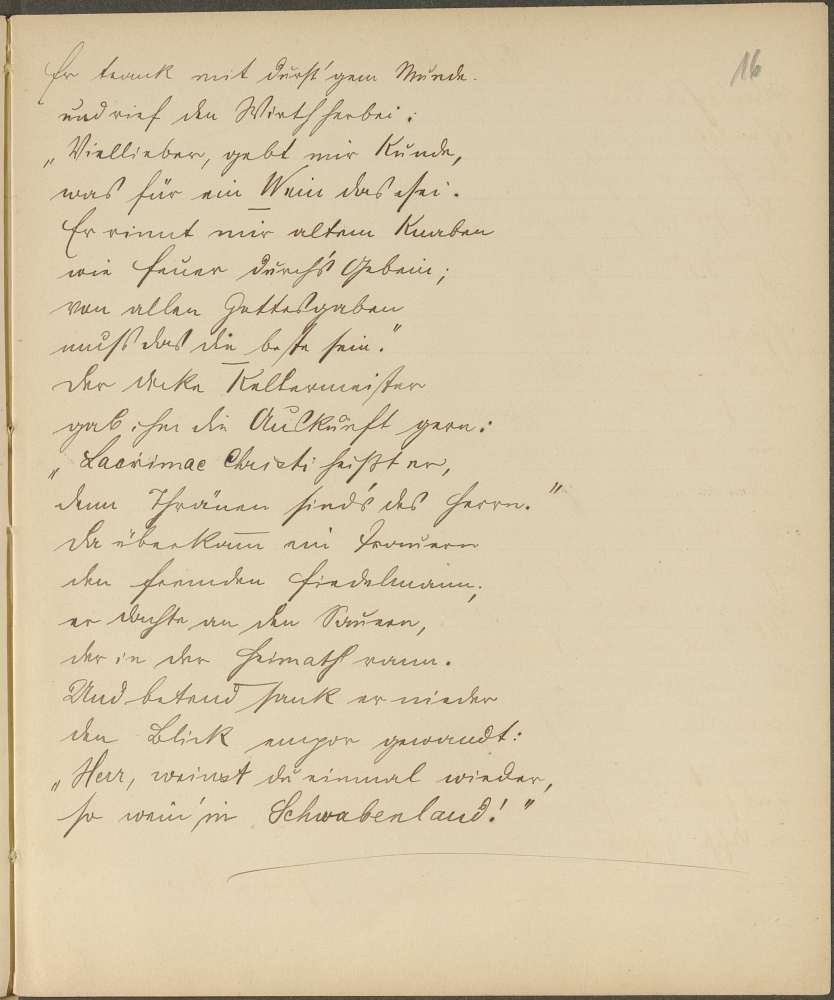 16
Er trank mit durst'gem Munde
und rief den Wirth herbei:
„Viellieber, gebt mir Kunde,
was für ein Wein das sei.
Er rinnt mir altem Knaben
wie Feuer durch's Gebein;
von allen Gottesgaben
muß das die beste sein."
Der dicke Kellermeister
gab ihm die Auskunft gern:
„Lacrimae Christi heißt er,
denn Thränen sind's des Herrn."
Da überkam̄ ein Trauern
den fremden Fiedelmann;
er dachte an den Sauern,
der in der Heimath rann.
Und betend sank er nieder
den Blick empor gewandt:
„Herr, weinst du einmal wieder,
so wein' in Schwabenland!"